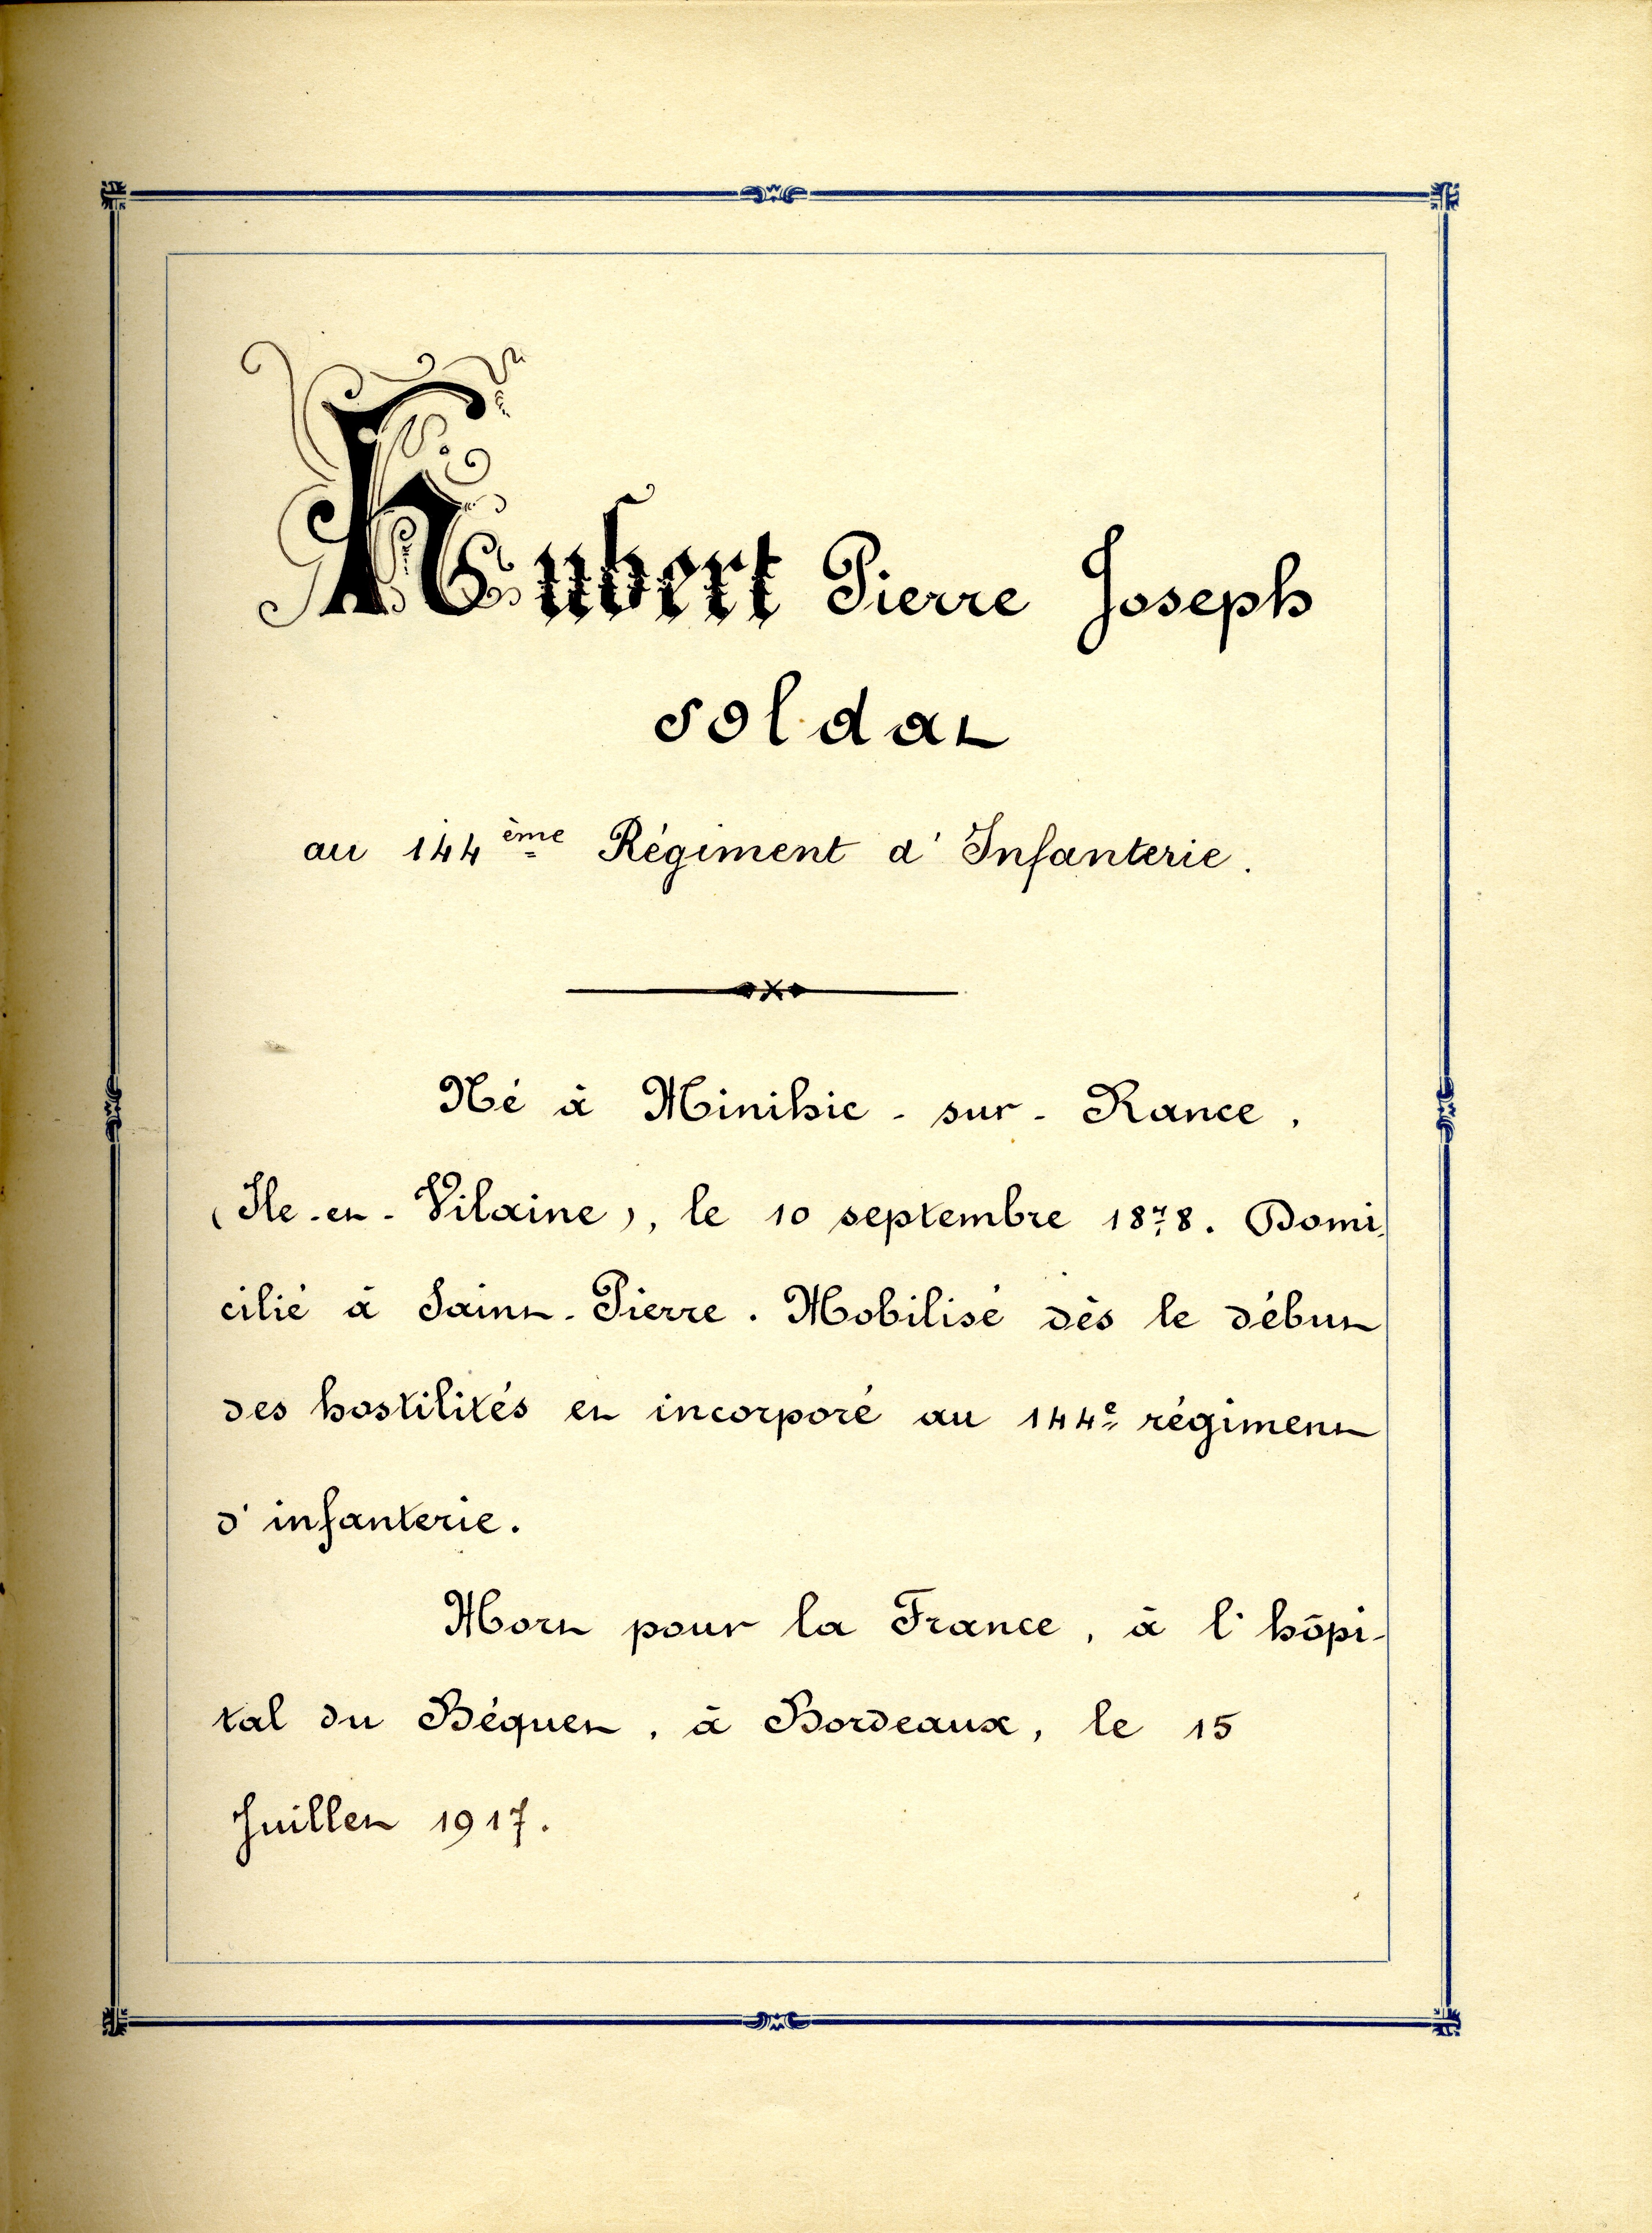 Hubert Pierre Joseph
soldat
au 144ème Régiment d'Infanterie.
Né à Minihic-sur-Rance,
(Ile-et-Vilaine), le 10 septembre 1878. Domi-
cilié à Saint-Pierre. Mobilisé dès le début
des hostilités et incorporé au 144e régiment
d'infanterie.
Mort pour la France, à l'hôpi-
tal du Béquet, à Bordeaux, le 15
Juillet 1917.